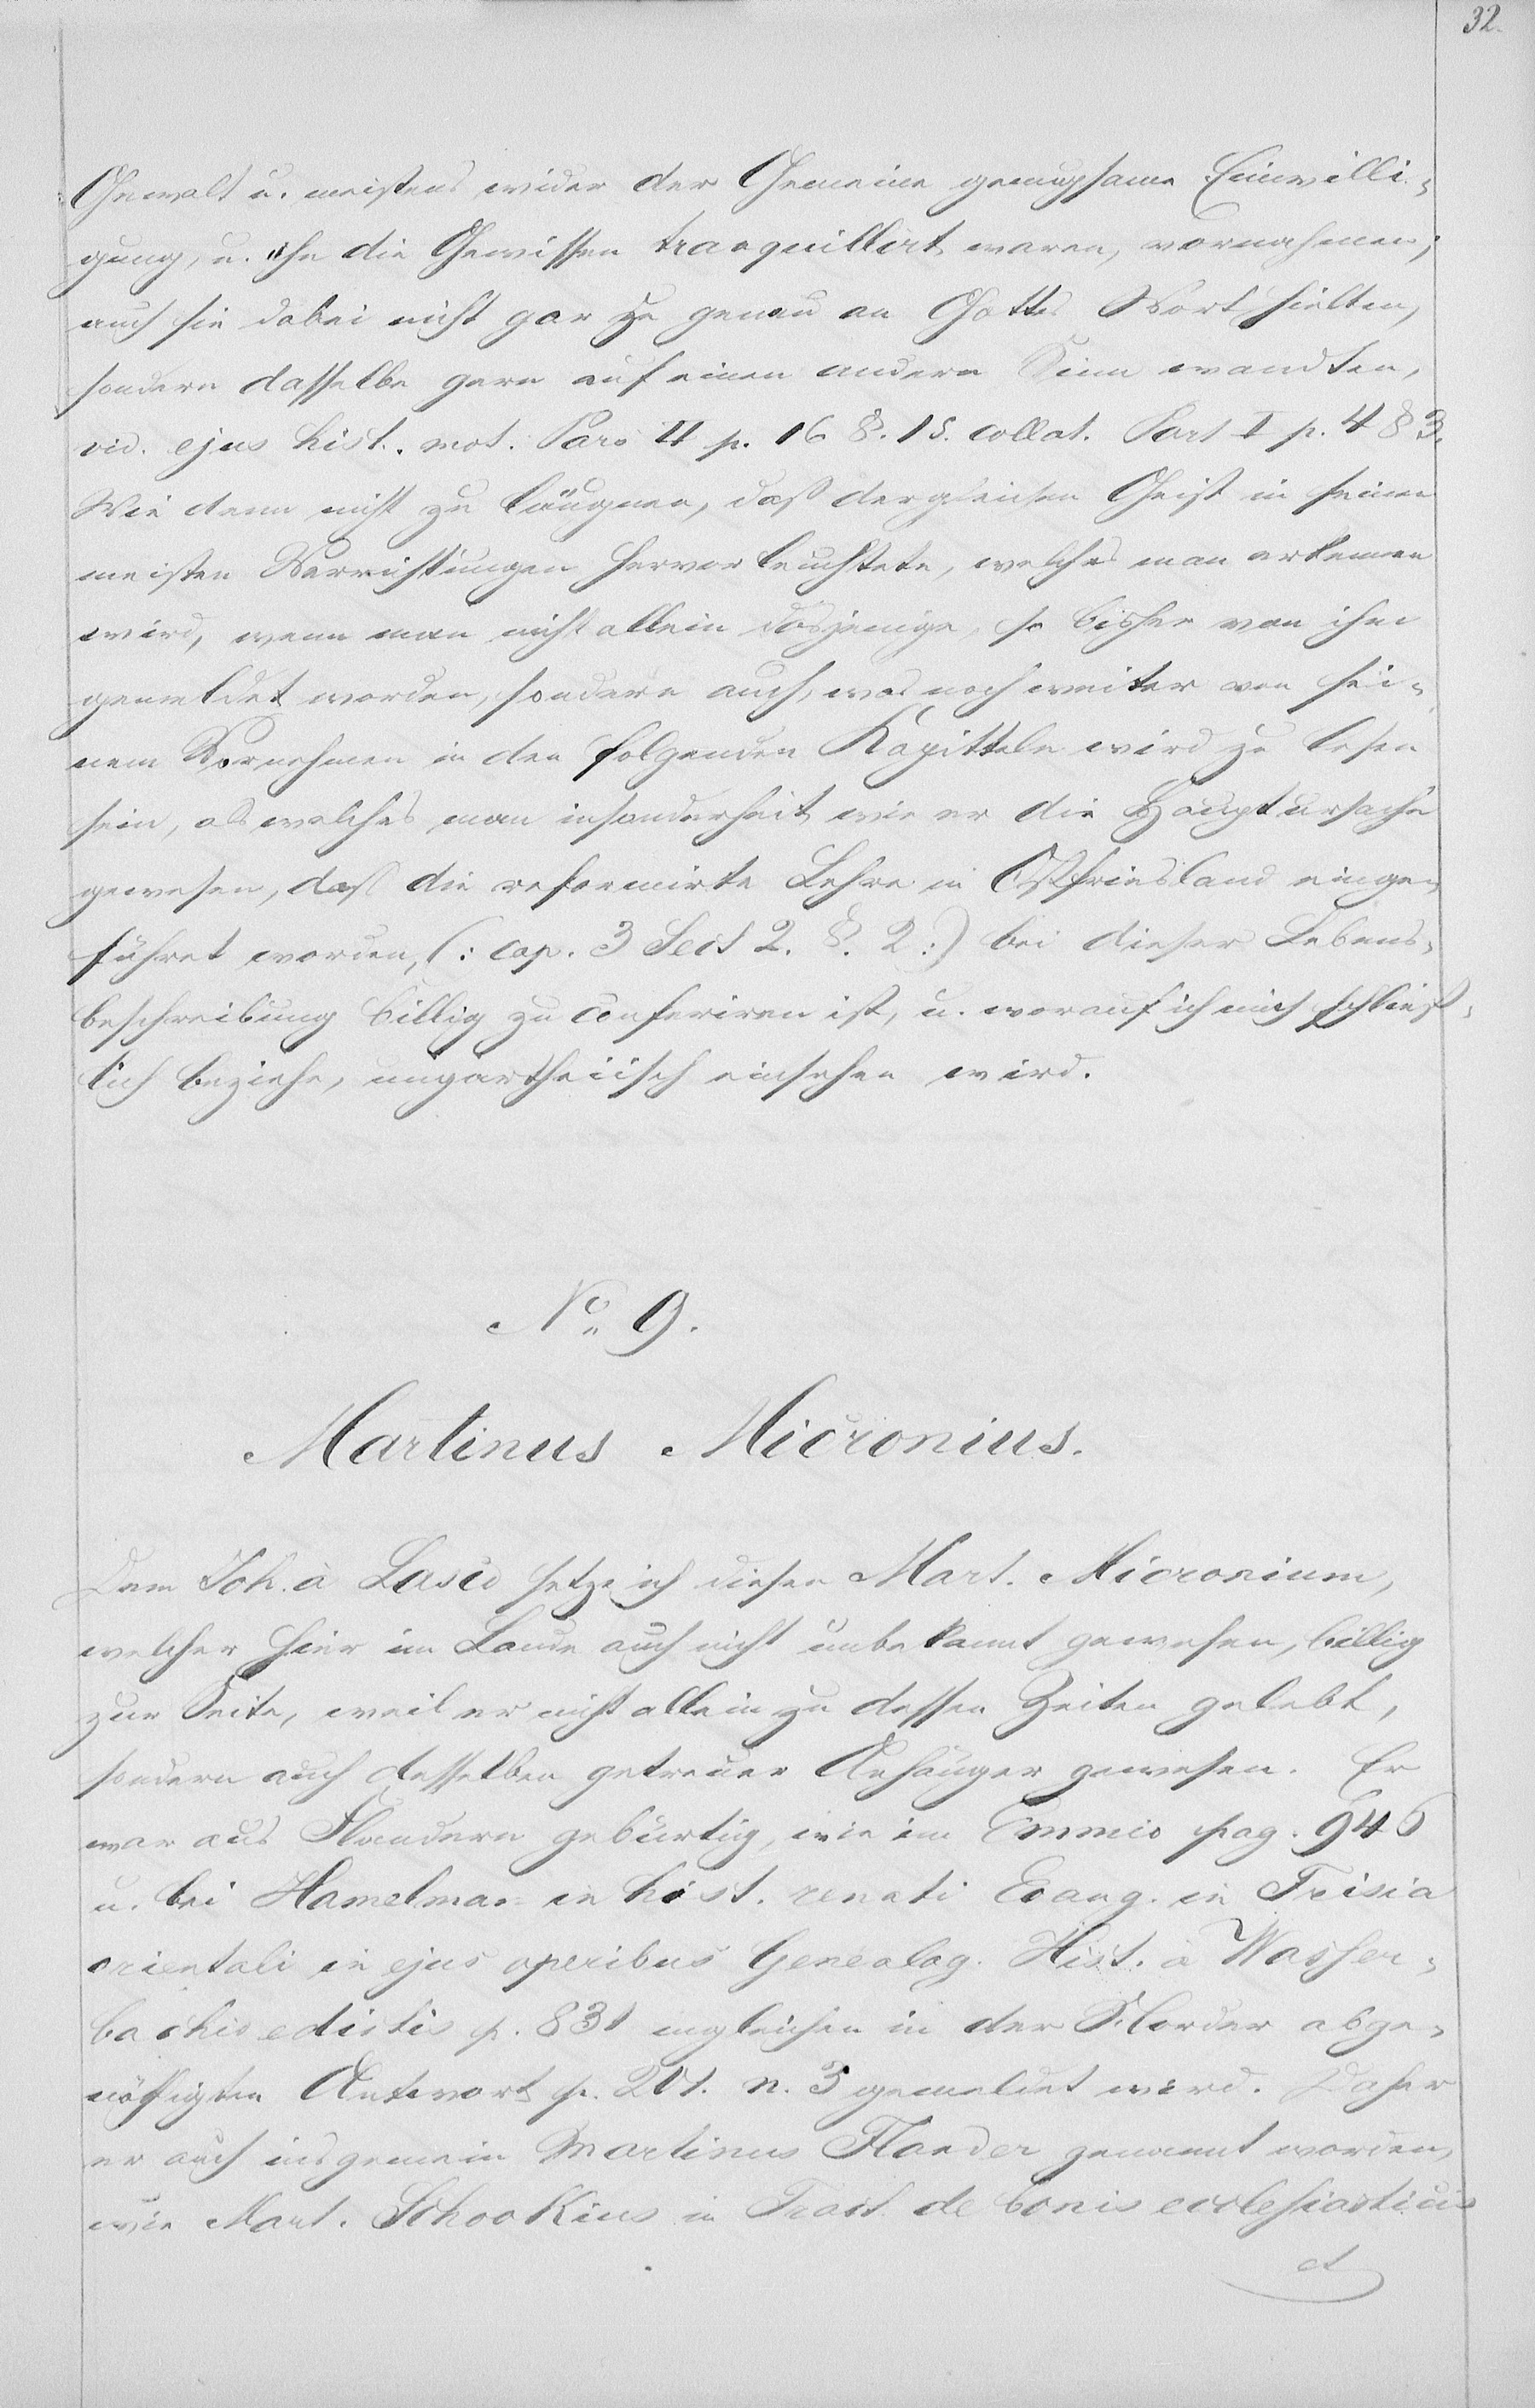 32.
Gewalt u. meistens wider der Gemeine genugsame Einwilli-
gung, u. ehe die Gewissen tranquillirt waren, vornahmen,
auch sie dabei nicht gar zu genau an Gottes Wort hielten,
sondern dasselbe gern auf einen andern Sinn wandten,
vid. ejus hist. mot. Pars II p. 16 §. 15. collat. Part I p. 4 § 3.
Wie denn nicht zu läugnen, daß dergleichen Geist in seinen
meisten Verrichtungen hervorleuchtete, welches man erkennen
wird, wenn man nicht allein dasjenige, so bisher von ihm
gemeldet worden, sondern auch, was noch weiter von sei-
nem Vornehmen in den folgenden Kapitteln wird zu lesen
sein, als welches man insonderheit wie er die Hauptursache
gewesen, daß die reformirte Lehre in Ostfriesland einge-
führet worden, (: cap. 3 Sect 2. §. 2 :) bei dieser Lebens-
beschreibung billig zu conferiren ist, u. worauf ich mich schließ-
lich beziehe, unpartheiisch einsehen wird.
No. 9.
Martinus Micronius.
Dem Joh. à Lasco setze ich diesen Mart. Micronium,
welcher hier im Lande auch nicht unbekannt gewesen, billig
zur Seite, weil er nicht allein zu dessen Zeiten gelebt,
sondern auch desselben getreuer Anhänger gewesen. Er
war aus Flandern gebürtig, wie im Emmio pag. 946
u. bei Hamelman in hist. renati Evang. in Frisia
orientali in ejus operibus Genealog. Hist. à Wasser-
bachio edictis p. 831 ingleichen in der Norder abge-
nöthigten Antwort p. 201. n. 3 gemeldet wird. Daher
er auch insgemein Martinus Flander genannt worden,
wie Mart. Schookius in Tract. de bonis ecclesiasticis
et